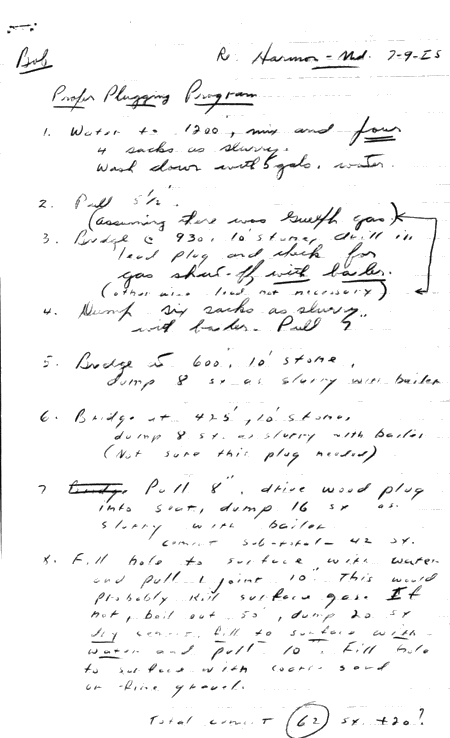 Bob
Re. Harmon - Md. 7-9-IS
Proper Plugging Program
1. Water to 1200', mix and four
4 sacks as slurry.
Wash down with 5 gals. water.
2. Pull 5 1/2".
(assuming there was Guelph gas)
3. Bridge @ 930, 10' stone, drill in
lead plug and check for
gas shut-off with bailer.
(otherwise lead not necessary)
4. Dump six sacks as slurry
with bailer. Pull 7".
5. Bridge @ 600', 10' stone,
dump 8 sx as slurry with bailer
6. Bridge at 425', 10' stone,
dump 8 sx. as slurry with bailer
(Not sure this plug needed)
7 Pull 8", drive wood plug
into seat, dump 16 sx as
slurry with bailer
cement sub-total - 42 sx.
8. Fill hole to surface with water
and pull 1 joint 10". This would
probably kill surface gas. If
not, bail out 50', dump 20 sx
dry cement, fill to surface with
water and pull 10". Fill hole
to surface with coarse sand
or fine gravel.
Total cement 62 sx. +20?